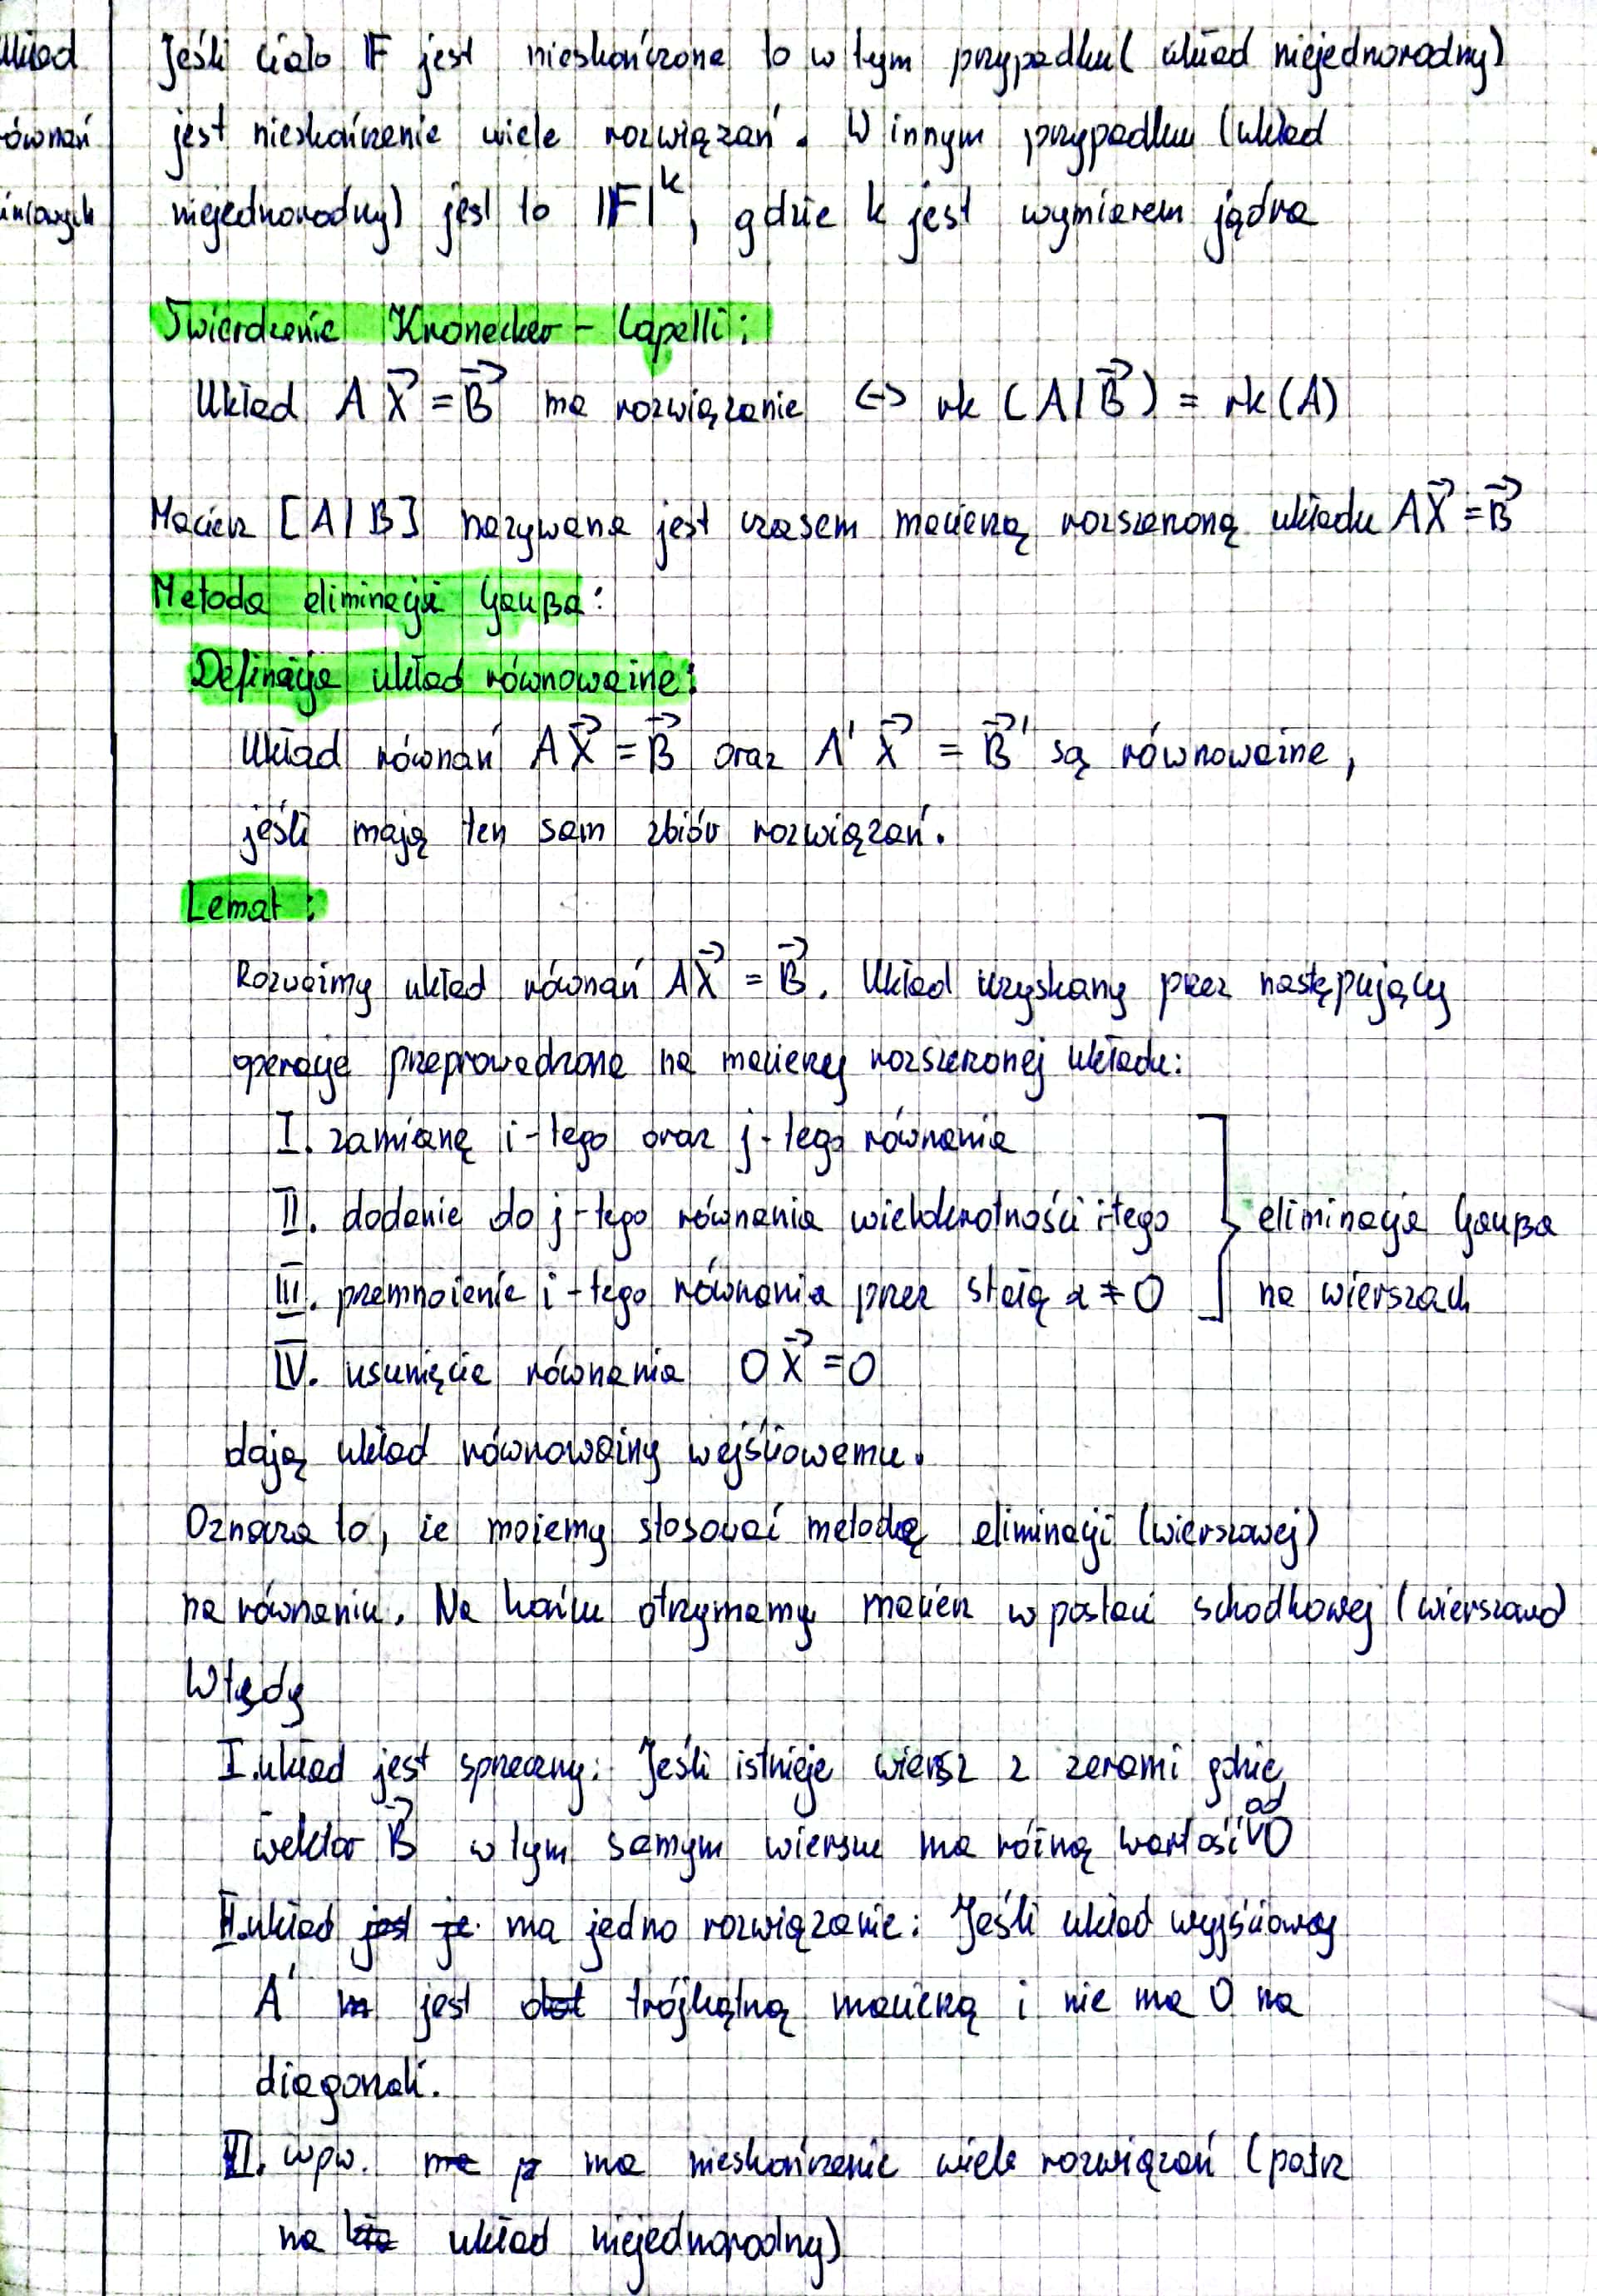 Układ
równań
liniowych
Jeśli ciało 𝔽 jest nieskończone to w tym przypadku (układ niejednorodny)
jest nieskończenie wiele rozwiązań. W innym przypadku (układ
niejednorodny) jest to |𝔽|^k, gdzie k jest wymiarem jądra
Twierdzenie Kronecker - Capelli:
Układ A X⃗ = B⃗ ma rozwiązanie <-> rk (A|B⃗) = rk(A)
Macierz [A|B] nazywana jest czasem macierzą rozszerzoną układu AX⃗ = B⃗
Metoda eliminacji Gaußa:
Definicja układ równoważne:
Układ równań AX⃗ = B⃗ oraz A' X⃗ = B⃗' są równoważne,
jeśli mają ten sam zbiór rozwiązań.
Lemat:
Rozważmy układ równań AX⃗ = B⃗. Układ uzyskany przez następujący
operacje przeprowadzone na macierzy rozszerzonej układu:
I. zamianę i-tego oraz j-tego równania
II. dodanie do j-tego równania wielokrotności i-tego
III. przemnożenie i-tego równania przez stałą α ≠ 0
eliminacja Gaußa
na wierszach
IV. usunięcie równania 0X⃗ = 0
dają układ równoważny wejściowemu.
Oznacza to, że możemy stosować metodę eliminacji (wierszowej)
na równaniu. Na końcu otrzymamy macierz w postaci schodkowej (wierszowo)
Wtedy
I. układ jest sprzeczny: Jeśli istnieje wiersz z zerami gdzie
wektor B⃗ w tym samym wierszu ma różną wartość od 0
II. układ jest je ma jedno rozwiązanie: Jeśli układ wyjściowy
A' m jest trójkątną macierzą i nie ma 0 na
diagonali.
III. wpw. ma p ma nieskończenie wiele rozwiązań (patrz
na układ niejednorodny)